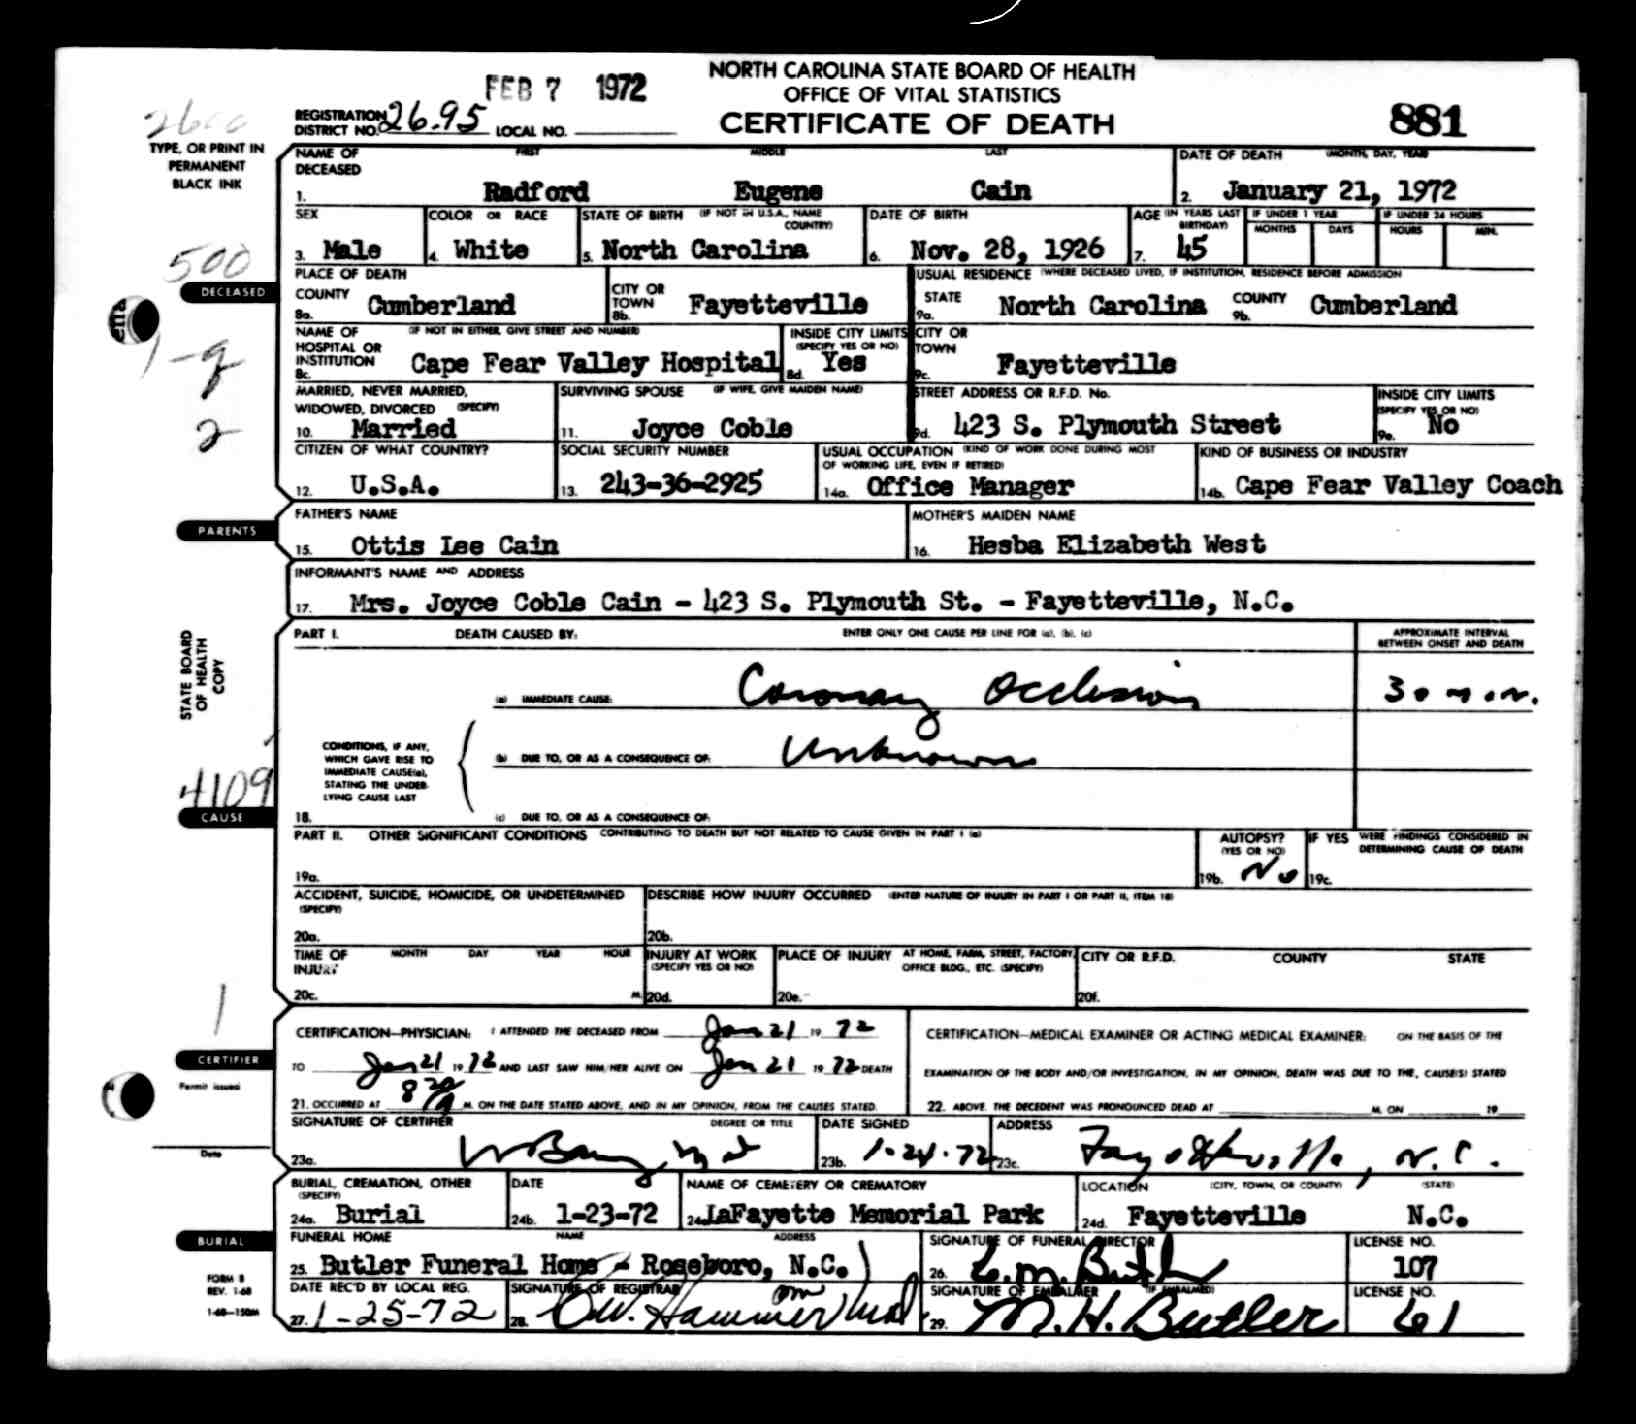 FEB 7 1972
NORTH CAROLINA STATE BOARD OF HEALTH
OFFICE OF VITAL STATISTICS
CERTIFICATE OF DEATH
881
REGISTRATION DISTRICT NO. 26.95 LOCAL NO.
TYPE, OR PRINT IN
PERMANENT
BLACK INK
NAME OF DECEASED FIRST MIDDLE LAST
1. Radford Eugene Cain
DATE OF DEATH (MONTH, DAY, YEAR)
2. January 21, 1972
SEX
3. Male
COLOR OR RACE
4. White
STATE OF BIRTH (IF NOT IN U.S.A., NAME COUNTRY)
5. North Carolina
DATE OF BIRTH
6. Nov. 28, 1926
AGE (IN YEARS LAST BIRTHDAY)
7. 45
IF UNDER 1 YEAR
MONTHS DAYS
IF UNDER 24 HOURS
HOURS MIN.
500
DECEASED
PLACE OF DEATH
COUNTY
8a. Cumberland
CITY OR TOWN
8b. Fayetteville
USUAL RESIDENCE (WHERE DECEASED LIVED, IF INSTITUTION, RESIDENCE BEFORE ADMISSION
STATE
9a. North Carolina
COUNTY
9b. Cumberland
NAME OF HOSPITAL OR INSTITUTION (IF NOT IN EITHER, GIVE STREET AND NUMBER)
8c. Cape Fear Valley Hospital
INSIDE CITY LIMITS (SPECIFY YES OR NO)
8d. Yes
CITY OR TOWN
9c. Fayetteville
2
MARRIED, NEVER MARRIED, WIDOWED, DIVORCED (SPECIFY)
10. Married
SURVIVING SPOUSE (IF WIFE, GIVE MAIDEN NAME)
11. Joyce Coble
STREET ADDRESS OR R.F.D. No.
9d. 423 S. Plymouth Street
INSIDE CITY LIMITS (SPECIFY YES OR NO)
9e. No
CITIZEN OF WHAT COUNTRY?
12. U.S.A.
SOCIAL SECURITY NUMBER
13. 243-36-2925
USUAL OCCUPATION (KIND OF WORK DONE DURING MOST OF WORKING LIFE, EVEN IF RETIRED)
14a. Office Manager
KIND OF BUSINESS OR INDUSTRY
14b. Cape Fear Valley Coach
PARENTS
FATHER'S NAME
15. Ottis Lee Cain
MOTHER'S MAIDEN NAME
16. Hesba Elizabeth West
INFORMANT'S NAME AND ADDRESS
17. Mrs. Joyce Coble Cain - 423 S. Plymouth St. - Fayetteville, N.C.
STATE BOARD
OF HEALTH
COPY
PART I. DEATH CAUSED BY: ENTER ONLY ONE CAUSE PER LINE FOR (a), (b), (c)
APPROXIMATE INTERVAL BETWEEN ONSET AND DEATH
(a) IMMEDIATE CAUSE: Coronary Occlusion 30 min.
CONDITIONS, IF ANY,
WHICH GAVE RISE TO
IMMEDIATE CAUSE(a),
STATING THE UNDER-
LYING CAUSE LAST
(b) DUE TO, OR AS A CONSEQUENCE OF: Unknown
18. (c) DUE TO, OR AS A CONSEQUENCE OF:
4109
CAUSE
PART II. OTHER SIGNIFICANT CONDITIONS CONTRIBUTING TO DEATH BUT NOT RELATED TO CAUSE GIVEN IN PART I (a)
19a.
AUTOPSY? (YES OR NO)
19b. No
IF YES WERE FINDINGS CONSIDERED IN DETERMINING CAUSE OF DEATH
19c.
ACCIDENT, SUICIDE, HOMICIDE, OR UNDETERMINED (SPECIFY)
20a.
DESCRIBE HOW INJURY OCCURRED (ENTER NATURE OF INJURY IN PART I OR PART II, ITEM 18)
20b.
TIME OF INJURY MONTH DAY YEAR HOUR
20c. M.
INJURY AT WORK (SPECIFY YES OR NO)
20d.
PLACE OF INJURY AT HOME, FARM, STREET, FACTORY, OFFICE BLDG., ETC. (SPECIFY)
20e.
CITY OR R.F.D. COUNTY STATE
20f.
1
CERTIFIER
Permit issued
Date
CERTIFICATION—PHYSICIAN: I ATTENDED THE DECEASED FROM Jan 21 19 72
TO Jan 21 19 72 AND LAST SAW HIM/HER ALIVE ON Jan 21 19 72 DEATH
21. OCCURRED AT 8 20 A M. ON THE DATE STATED ABOVE, AND IN MY OPINION, FROM THE CAUSES STATED.
CERTIFICATION—MEDICAL EXAMINER OR ACTING MEDICAL EXAMINER: ON THE BASIS OF THE
EXAMINATION OF THE BODY AND/OR INVESTIGATION, IN MY OPINION, DEATH WAS DUE TO THE, CAUSE(S) STATED
22. ABOVE. THE DECEDENT WAS PRONOUNCED DEAD AT M. ON 19
SIGNATURE OF CERTIFIER DEGREE OR TITLE
23a.
DATE SIGNED
23b. 1-24-72
ADDRESS
23c. Fayetteville, N.C.
BURIAL
BURIAL, CREMATION, OTHER (SPECIFY)
24a. Burial
DATE
24b. 1-23-72
NAME OF CEMETERY OR CREMATORY
24c. LaFayette Memorial Park
LOCATION (CITY, TOWN, OR COUNTY) (STATE)
24d. Fayetteville N.C.
FUNERAL HOME NAME ADDRESS
25. Butler Funeral Home - Roseboro, N.C.
SIGNATURE OF FUNERAL DIRECTOR
26. C.M. Butler
LICENSE NO.
107
FORM 8
REV. 1-68
1-68—150M
DATE REC'D BY LOCAL REG.
27. 1-25-72
SIGNATURE OF REGISTRAR
28.
SIGNATURE OF EMBALMER (IF EMBALMED)
29. M.H. Butler
LICENSE NO.
61